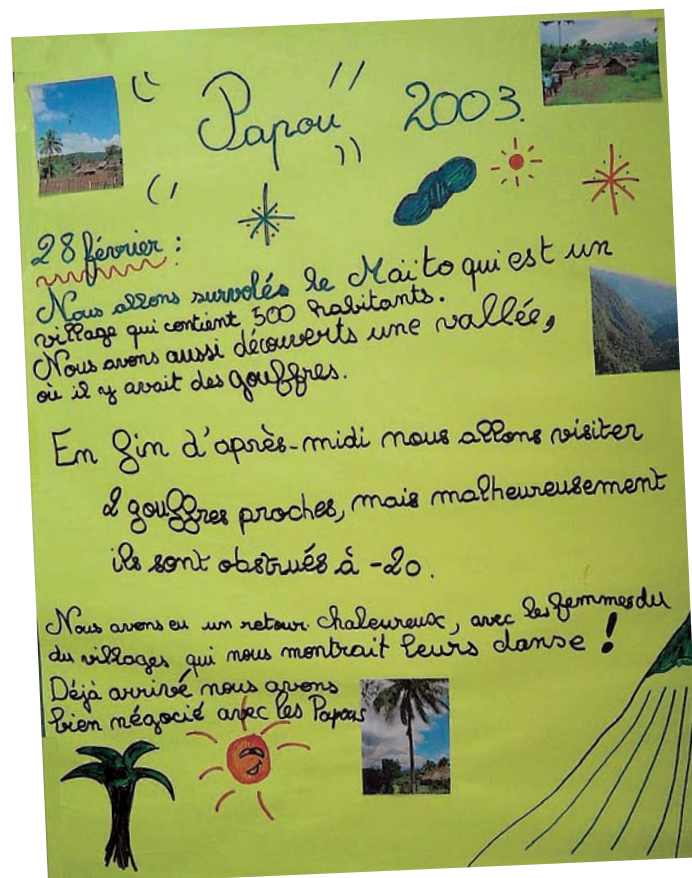 "Papou" 2003.
28 février :
Nous allons survolés le Maïto qui est un
village qui contient 500 habitants.
Nous avons aussi découverts une vallée,
où il y avait des gouffres.
En fin d'après-midi nous allons visiter
2 gouffres proches, mais malheureusement
ils sont obstrués à -20.
Nous avons eu un retour chaleureux, avec les femmes du
du villages qui nous montrait leurs danse !
Déjà arrivé nous avons
bien négocié avec les Papous